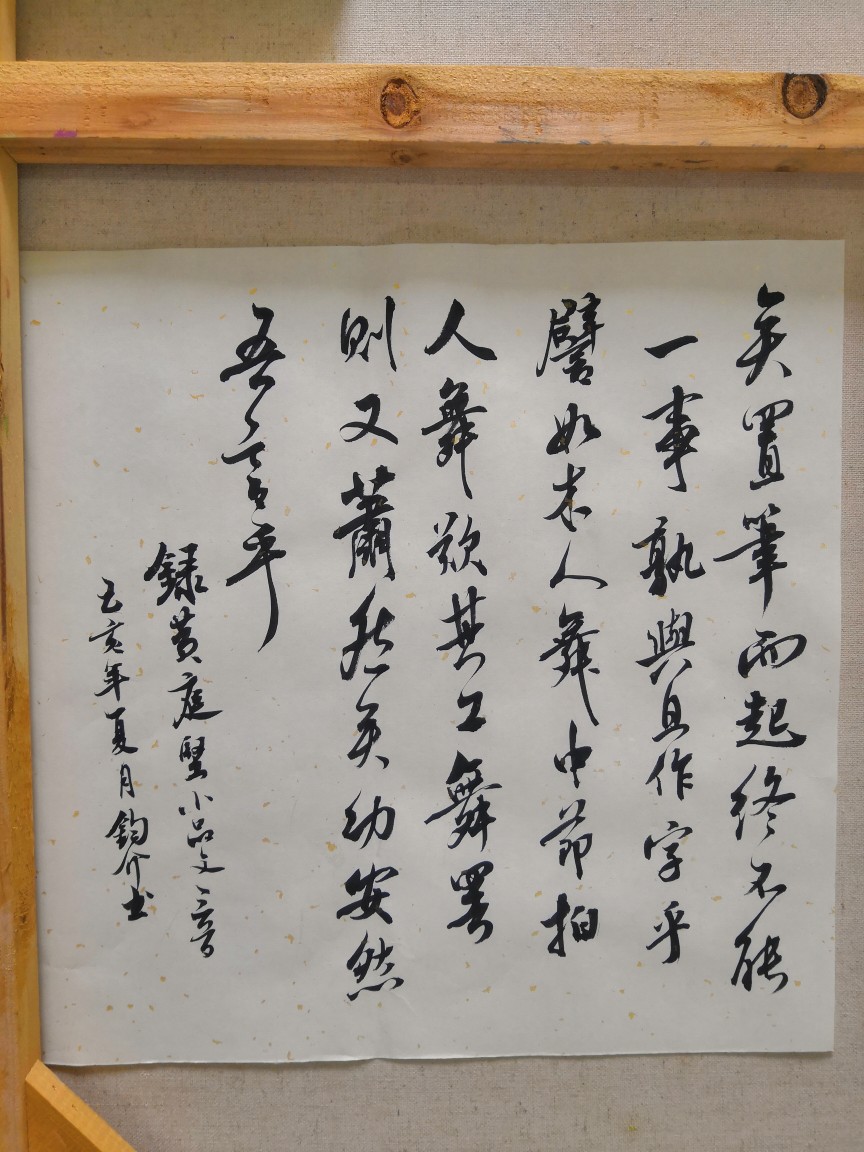 矣置筆而起終不能
一事孰與且作字乎
譬如木人舞中節拍
人舞歎其工舞罢
則又蕭然矣幼安然
吾言乎
録黄庭堅小品文一首
己亥年夏月鈞介书